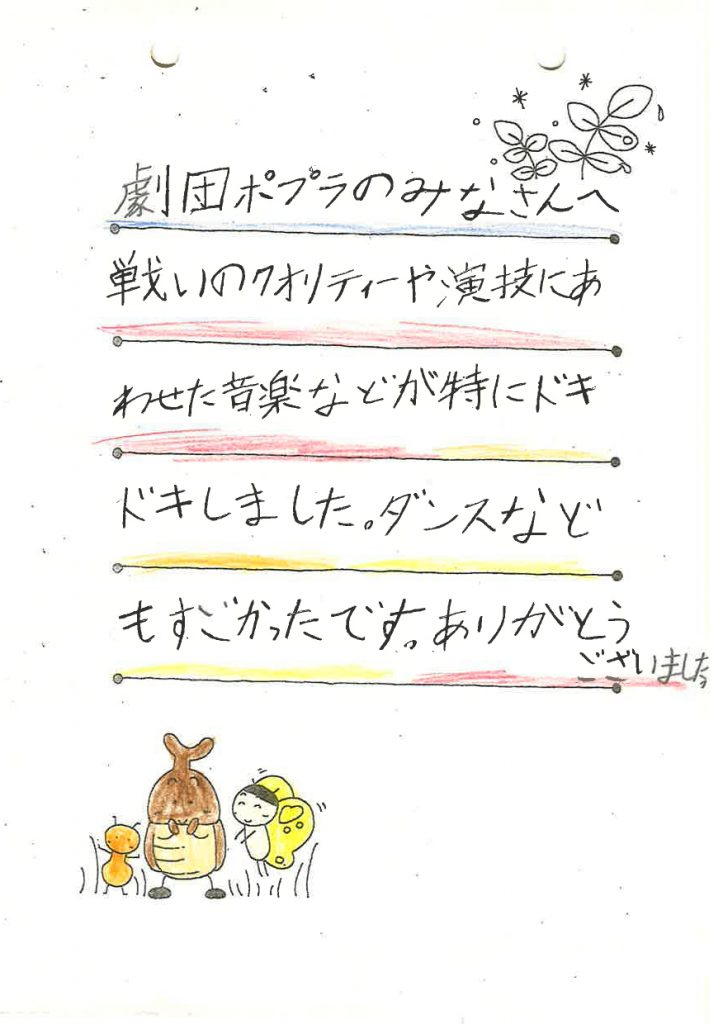 劇団ポプラのみなさんへ
戦いのクオリティーや演技にあ
わせた音楽などが特にドキ
ドキしました。ダンスなど
もすごかったです。ありがとう
ございました。